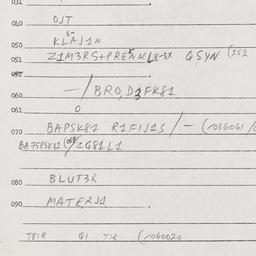 031
040 OJT
050 KLAJ1N
051 Z1M3RS+PRENKL8-8X QSYN (252
052
060 -/BRO,D3FK81
061 0
070 BAPSK81 R1FIJ1S/-(/036061/
BA75PSK81 ZG81L1
080 BLUT3R
090 MATERJ1
T81R Q1 T1R (/060020